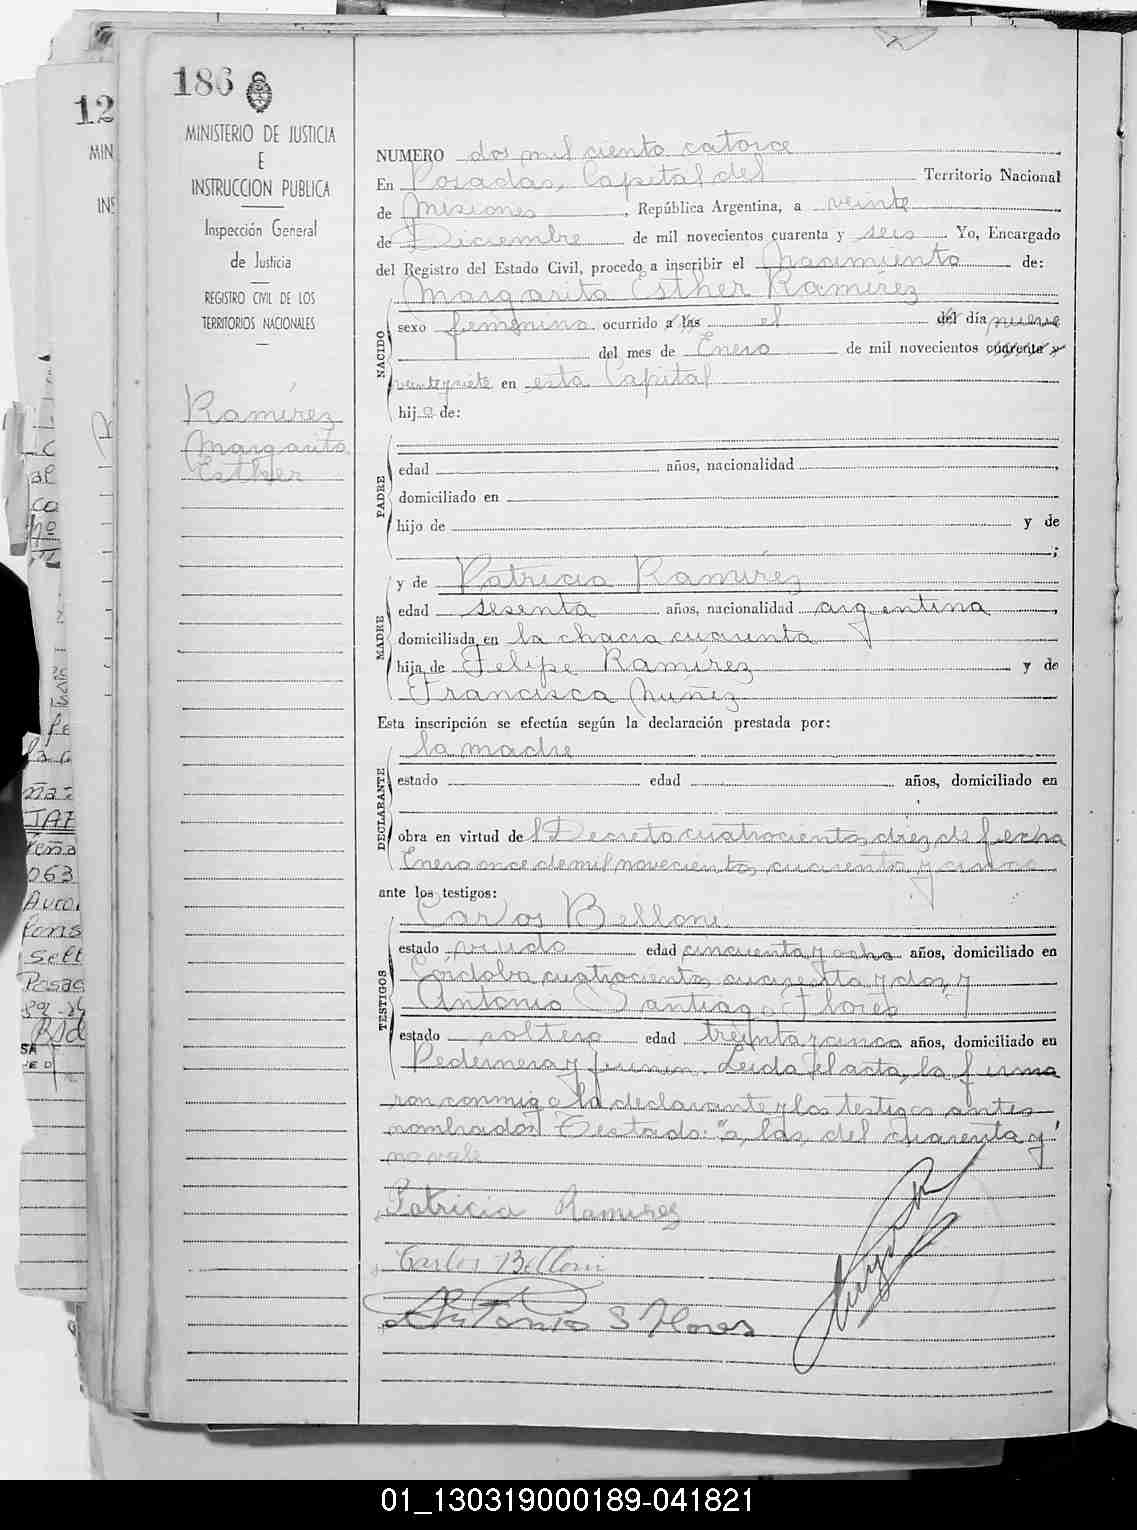 186
MINISTERIO DE JUSTICIA
E
INSTRUCCION PUBLICA
Inspección General
de Justicia
REGISTRO CIVIL DE LOS
TERRITORIOS NACIONALES
Ramírez
Margarita
Esther
12
MIN
INS
NUMERO dos mil ciento catorce
En Posadas, Capital del Territorio Nacional
de Misiones, República Argentina, a veinte
de Diciembre de mil novecientos cuarenta y seis Yo, Encargado
del Registro del Estado Civil, procedo a inscribir el Nacimiento de:
NACIDO
Margarita Esther Ramírez
sexo femenino ocurrido a las el del día nueve
del mes de Enero de mil novecientos cuarenta y
veintisiete en esta Capital
hija de:
PADRE
edad años, nacionalidad
domiciliado en
hijo de y de
;
MADRE
y de Patricia Ramírez
edad sesenta años, nacionalidad argentina,
domiciliada en la chacra cuarenta
hija de Felipe Ramírez y de
Francisca Nuñez
Esta inscripción se efectúa según la declaración prestada por:
DECLARANTE
la madre
estado edad años, domiciliado en
obra en virtud del Decreto cuatrocientos diez de fecha
Enero once de mil novecientos cuarenta y cinco
ante los testigos:
TESTIGOS
Carlos Belloni
estado viudo edad cincuenta y ocho años, domiciliado en
Córdoba cuatrocientos cuarenta y dos, y
Antonio Santiago Flores
estado soltero edad treinta y cinco años, domiciliado en
Pedernera y Junin. Leida el acta, la firma
ron conmigo la declarante y los testigos antes
nombrados. Testado: "a, las, del cuarenta y"
no vale
Patricia Ramirez
Carlos Belloni
Antonio S Flores
01_130319000189-041821